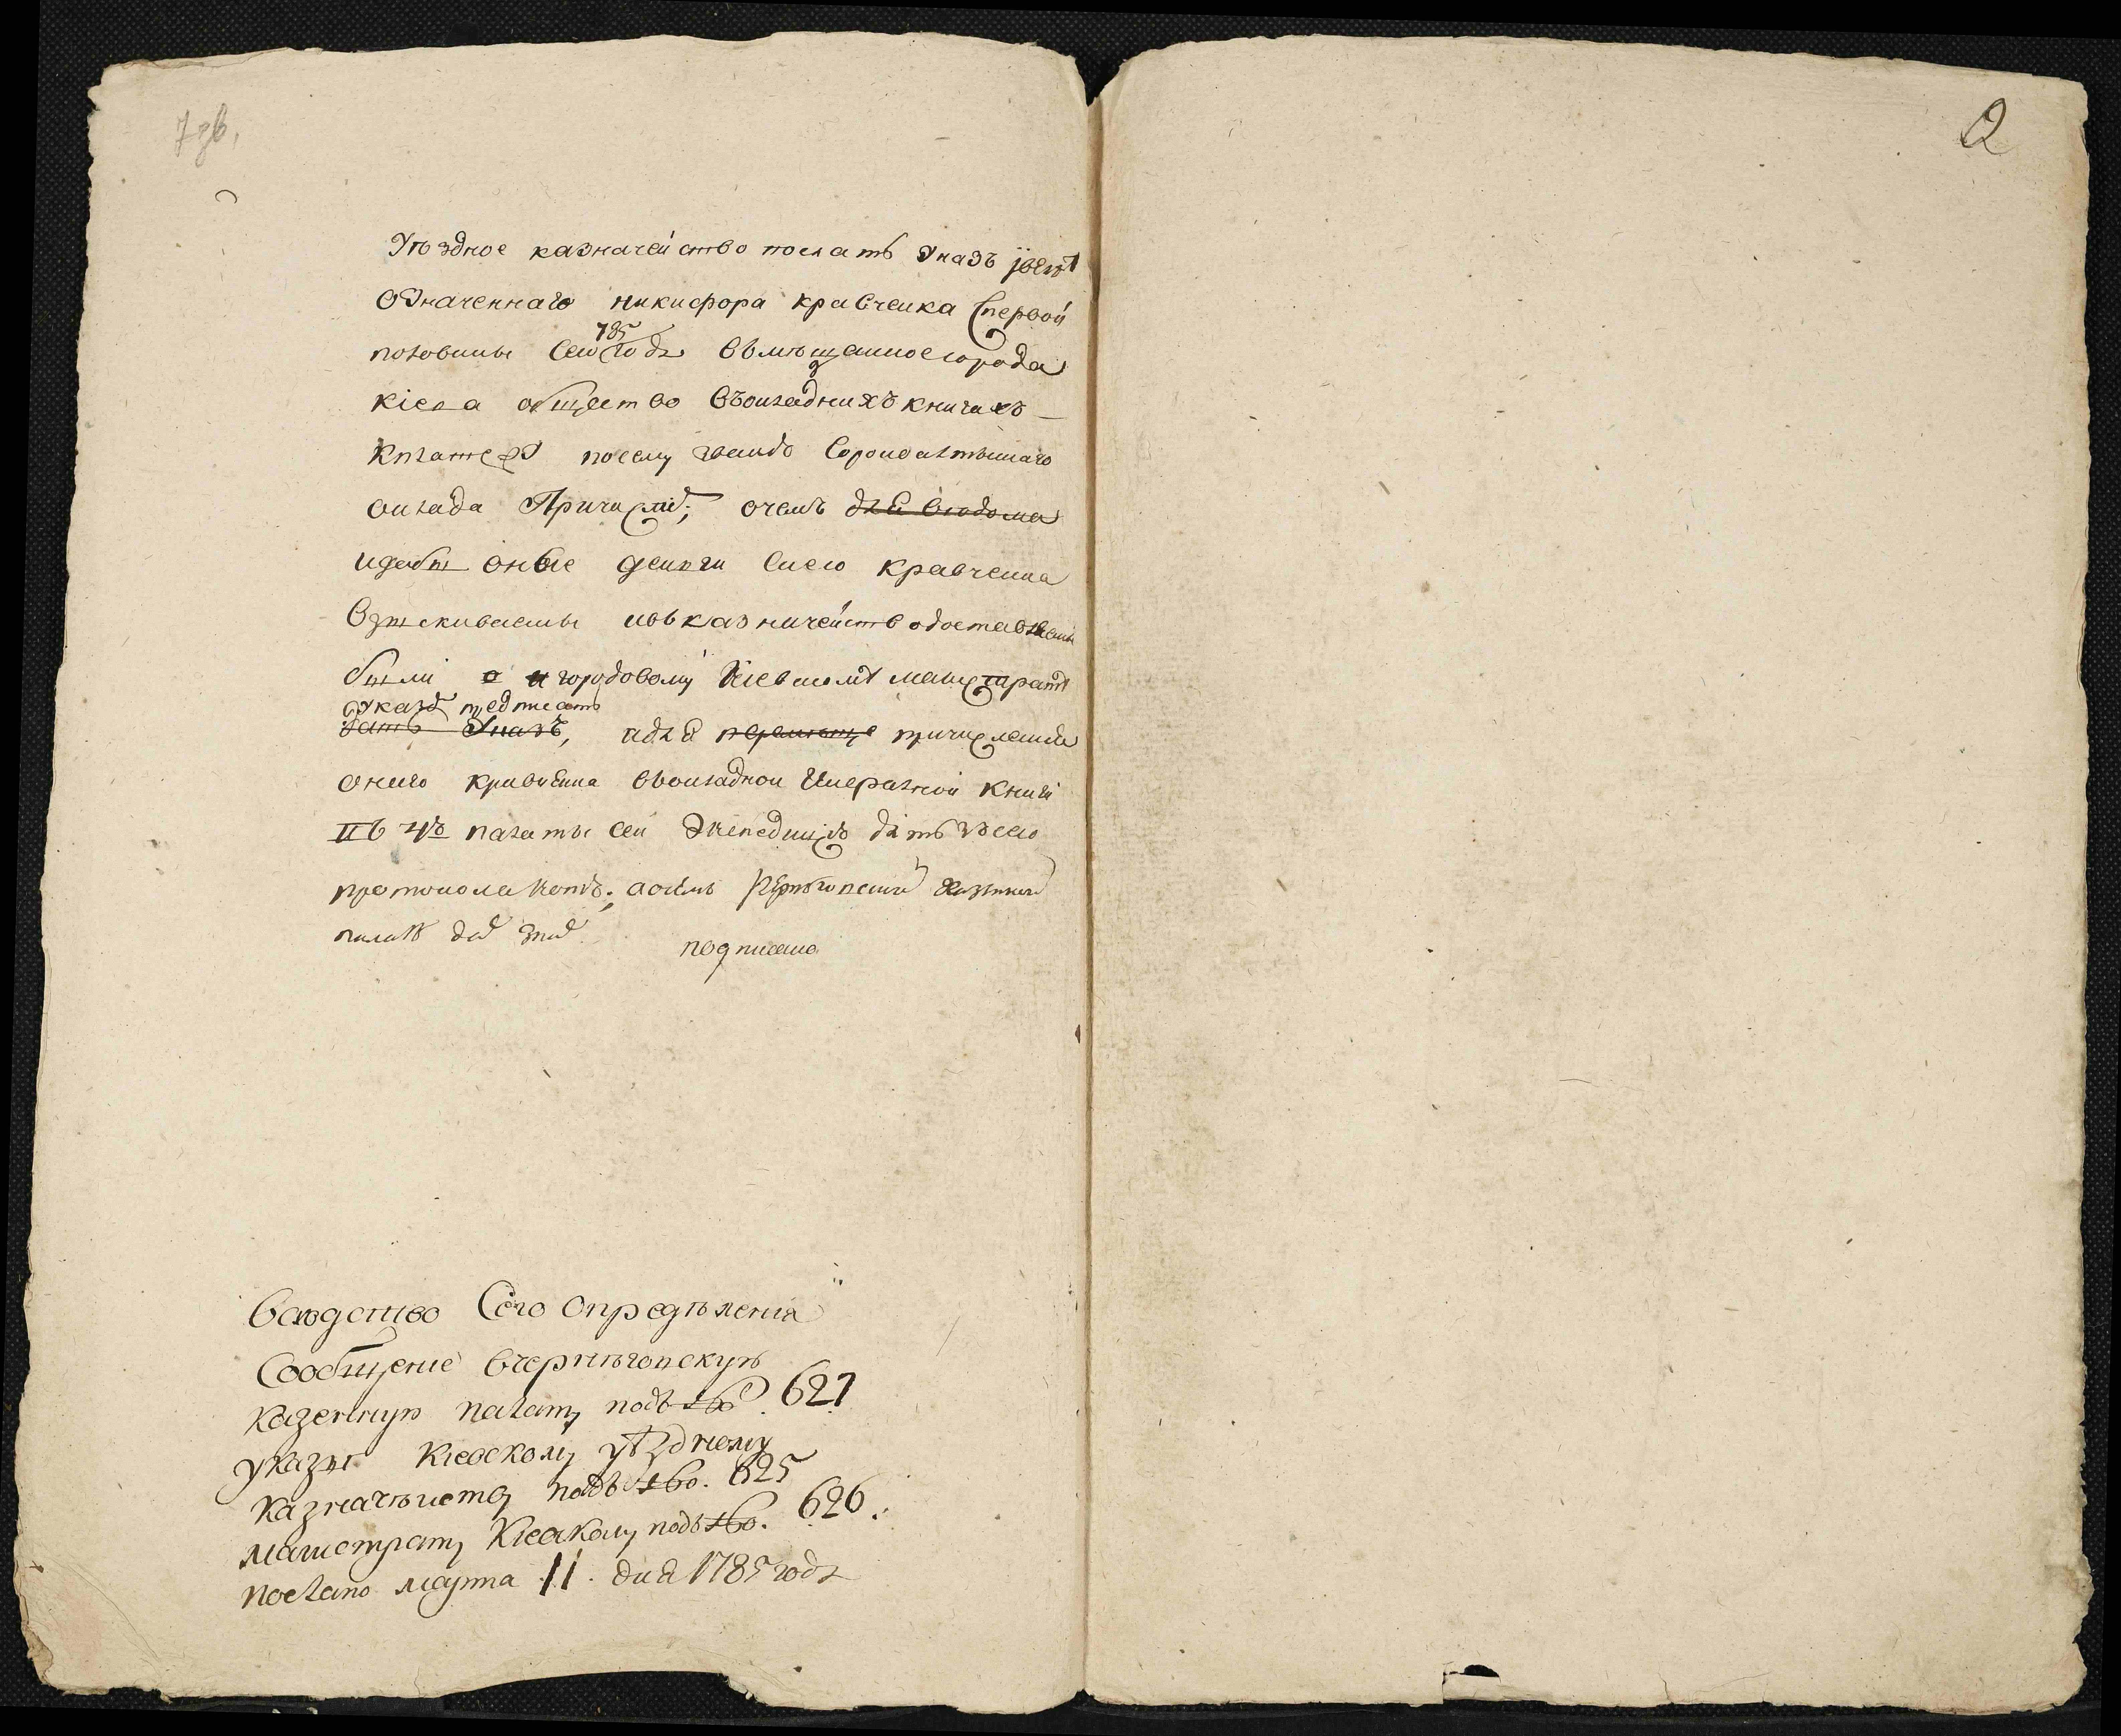 7 зв.
2
Уѣздное казначейство послать указъ и велѣт
означеннаго никифора кравченка спервой
половины сего 785 года въмѣщанное города
кіева общество въокладнихъ книгахъ
кплатежу посему званію
оклада Причислит; очемъ для свѣдома
идабы оные денги снего кравченка
взыскиваемы ивъказначейство доставляемы
были о и городовому Кіевскому магистрату
указом предписать
дать Указъ, адля перемены причисления
онаго кравченка вьокладной генералной книги
въ палаты сей Экспедицію дать ссего
протокола копію; аосемъ черниговской казенной
палатѣ дат знат.
подписано
Вслѣдствіе Сего опредѣленія
Сообщение вчерниговскую
казенную палату подъ № 627
указы Киевскому уѣздному
казначѣйству подъ №. 625
магистрату Киевскому подъ №. 626.
послано марта 11. дня 1785 года